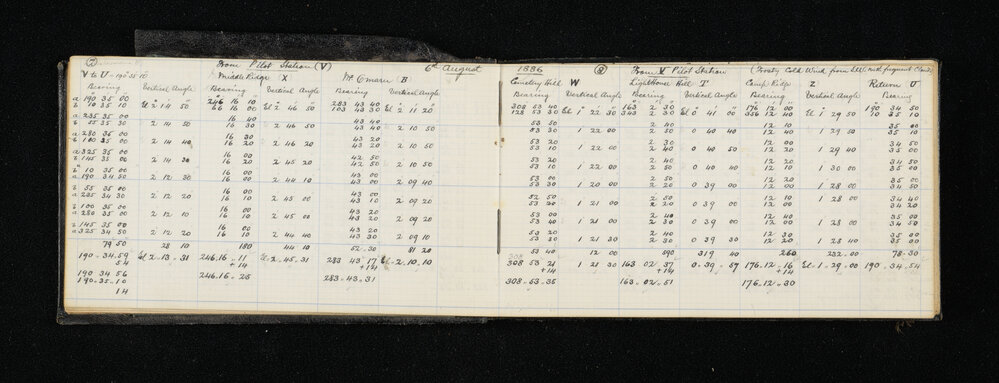 From Pilot Station (V) 6th August
V to U - 190 35 10 Middle Ridge X Mt Omaru B
Bearing Vertical Angle Bearing Vertical Angle Bearing Vertical Angle
a 190 35 00 El 2 14 50 246 16 10 El 2 46 50 283 43 40 El 2 11 20
b 10 35 10 66 16 00 103 43 30
a 235 35 00 16 40 43 40
b 55 35 30 2 14 50 16 30 2 46 50 43 40 2 10 50
a 280 35 00 16 30 43 20
b 100 35 00 2 14 40 16 20 2 46 20 43 20 2 10 50
a 325 35 00 16 00 42 50
b 145 35 00 2 14 30 16 20 2 45 20 42 50 2 10 50
b 10 35 00 16 00 43 00
a 190 34 50 2 12 30 16 00 2 44 10 43 00 2 09 40
b 55 35 00 16 00 43 00
a 235 34 30 2 12 20 16 10 2 45 00 43 10 2 09 20
b 100 35 00 16 00 43 20
a 280 35 00 2 12 10 16 10 2 45 00 43 20 2 09 20
b 145 35 00 16 00 43 20
a 325 34 50 2 12 20 16 10 2 44 10 43 30 2 09 10
79 50 28 10 180 44 10 52 30 81 20
190 - 34 - 59 El - 2 - 13 - 31 246.16 - 11 El - 2 - 45 - 31 283 43 17 El - 2 - 10 - 10
54 +14 +14
190 34 56 246.16 - 25 283 - 43 - 31
190 - 35 - 10
14
1886 From V Pilot Station (Frosty Cold Wind from
Cemetry Hill W Lighthouse Hill T Camp Ridge Z Return U
Bearing Vertical Angle Bearing Vertical Angle Bearing Vertical Angle Bearing
308 53 40 El 1 21 30 163 2 30 El 0 41 00 176 12 00 El 1 29 50 190 34 50
128 53 30 343 2 30 356 12 40 10 35 10
53 50 2 40 12 10 35 00
53 30 1 22 00 2 50 0 40 40 12 10 1 29 50 35 10
53 20 2 30 12 20 34 50
53 10 1 22 00 2 50 0 40 50 12 20 1 29 40 35 10
53 20 2 40 12 20 35 00
53 10 1 22 00 2 50 0 40 40 12 10 1 30 00 35 00
53 00 2 50 12 20 35 00
53 30 1 20 00 2 20 0 39 00 12 00 1 28 00 34 50
52 50 2 50 12 20 34 40
53 30 1 20 00 2 20 0 39 00 12 00 1 28 00 34 20
53 00 2 40 12 40 35 00
53 40 1 21 00 2 30 0 39 00 12 00 1 28 00 34 50
53 00 2 40 12 40 35 00
53 30 1 21 30 2 30 0 39 30 12 20 1 28 40 35 00
53 40 12 00 590 319 40 260 232 - 00 78 - 30
308 53 21 1 21 30 163 02 37 0 - 39 - 57 176 - 12 - 16 El - 1 - 29 - 00 190 - 34 - 54
+14 +14 +14
308 - 53 - 35 163 - 02 - 51 176 - 12 - 30